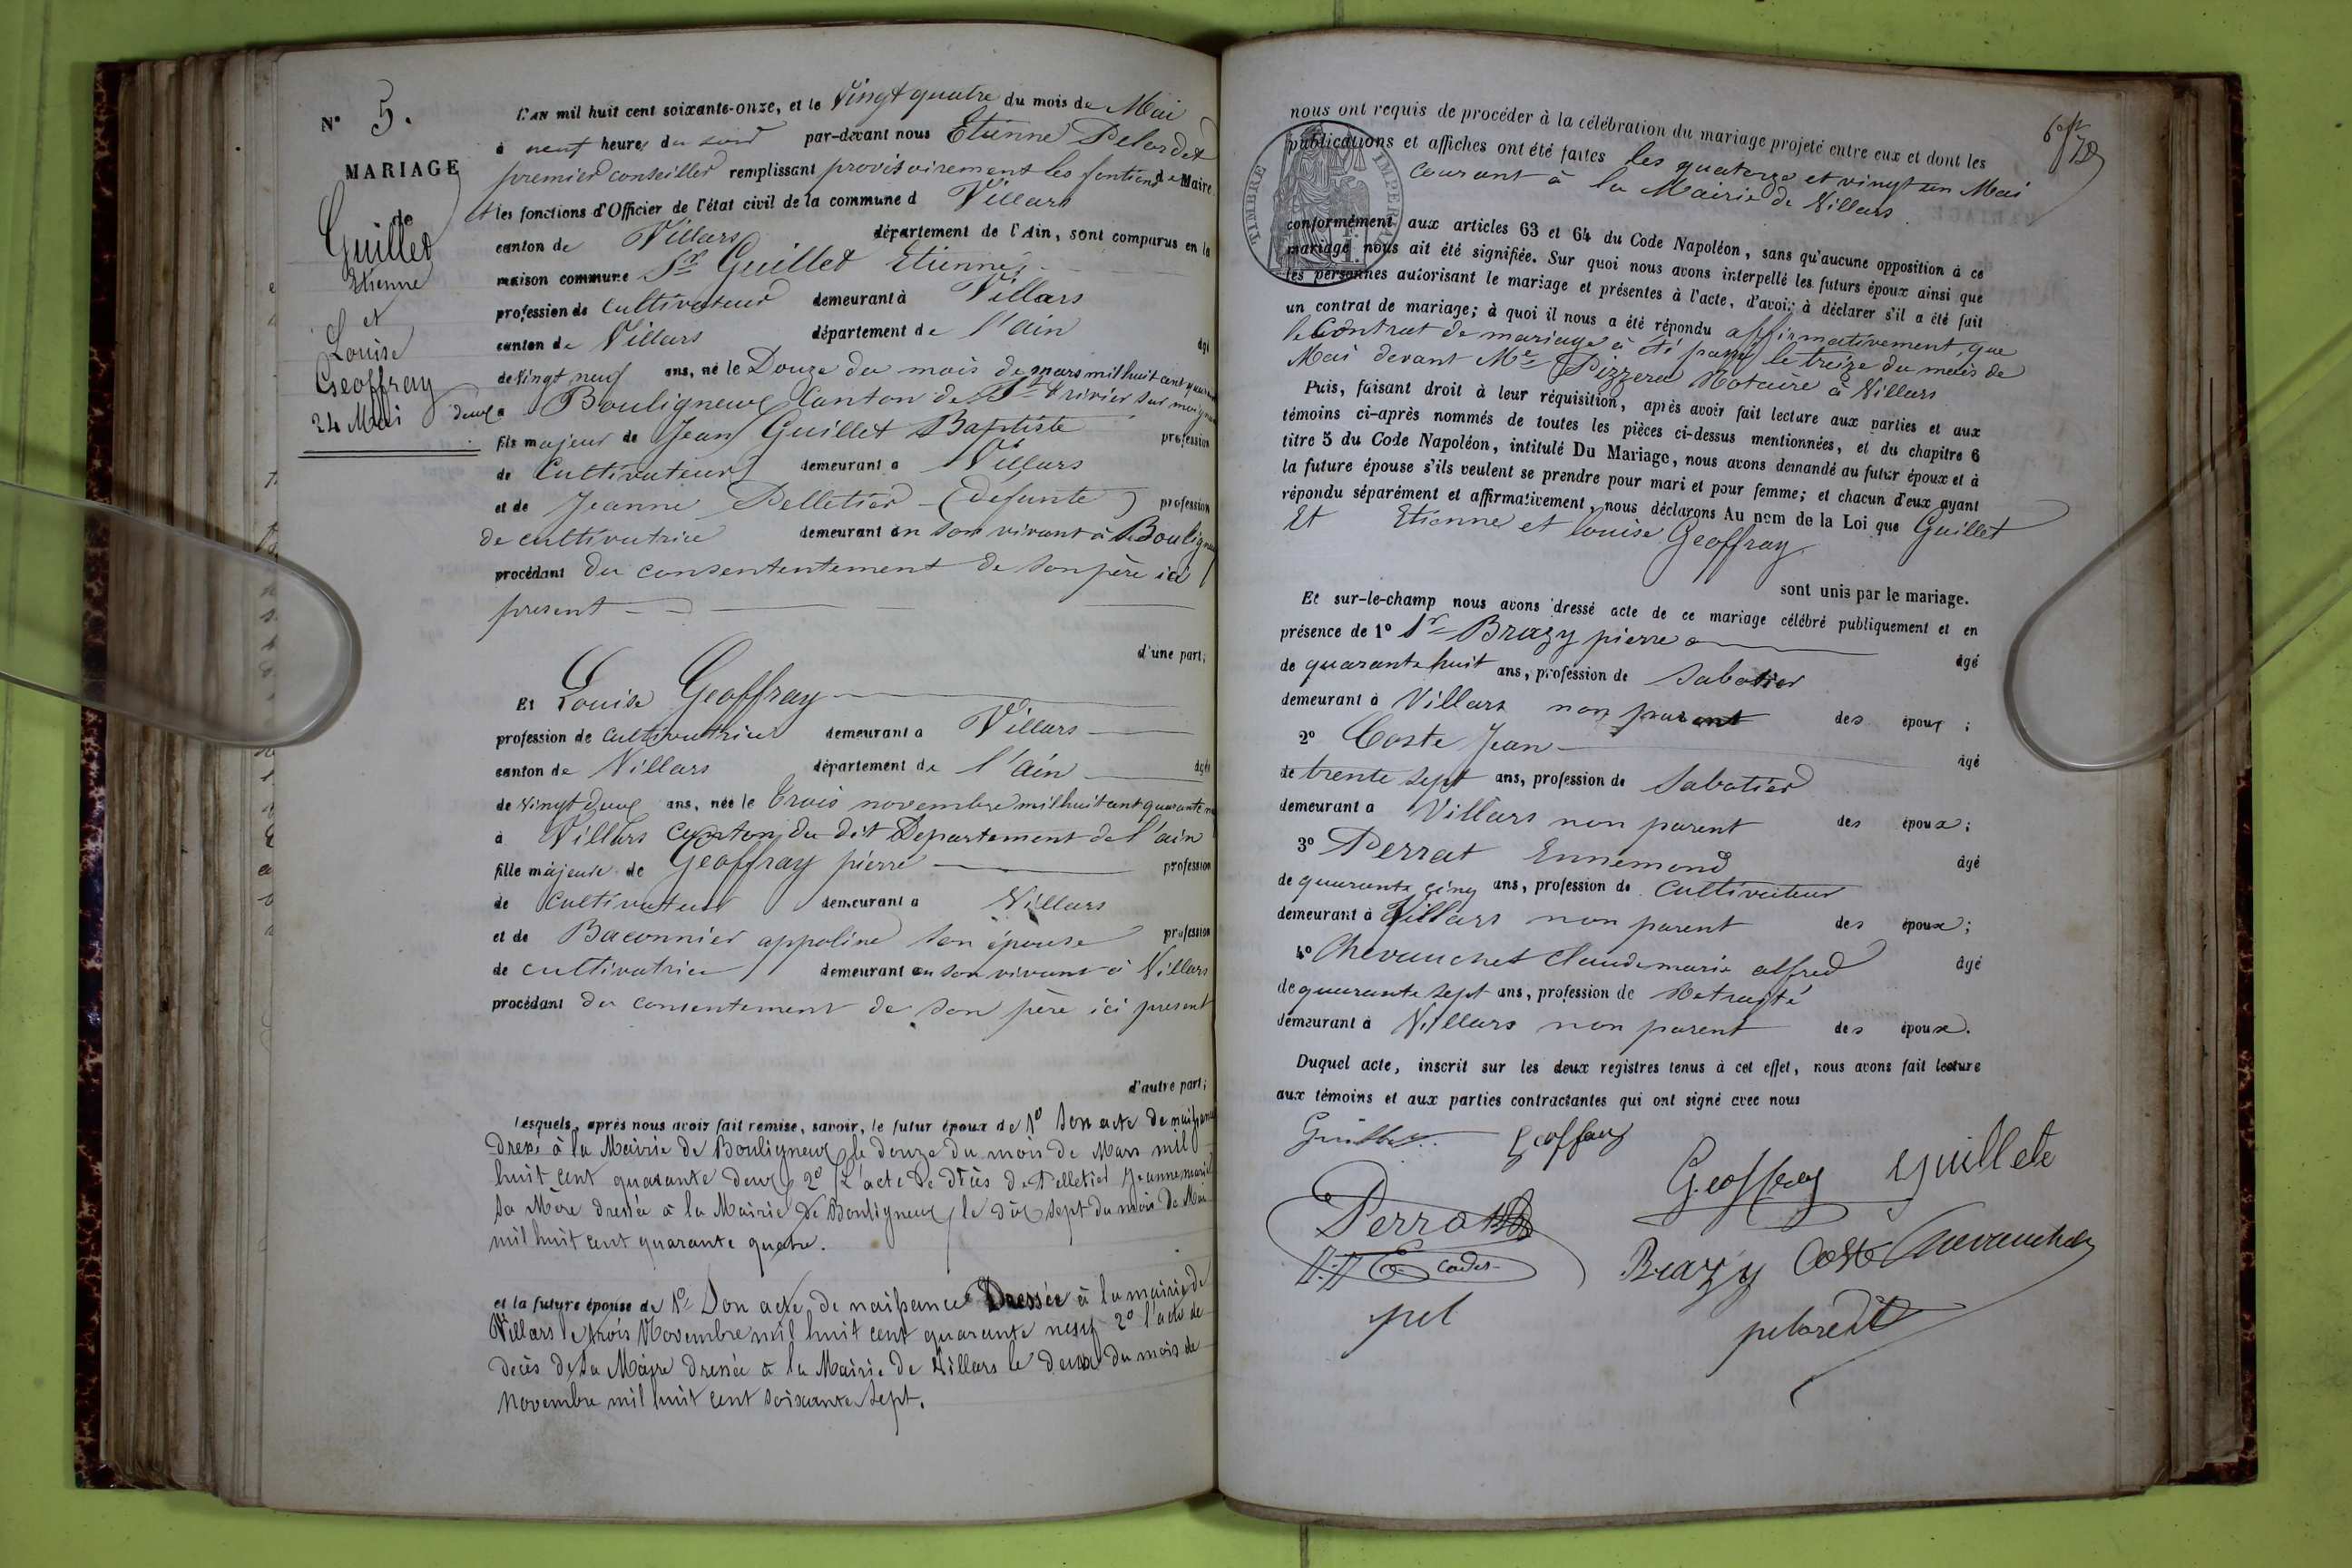 N° 5.
MARIAGE
de
Guillet
Etienne
et
Louise
Geoffray
24 Mai
L'AN mil huit cent soixante-onze, et le vingt quatre du mois de Mai
à neuf heures du soir par-devant nous Etienne Pelordet
premier conseiller remplissant provisoirement les fontions de Maire
et les fonctions d'Officier de l'état civil de la commune d Villars
canton de Villars département de l'Ain, sont comparus en la
maison commune Sr Guillet Etienne
profession de cultivateur demeurant à Villars
canton de Villars département de l'ain âgé
de vingt neuf ans, né le Douze du mois de mars mil huit cent quarante
deux à Bouligneux Canton de St Trivier sur
fils majeur de Jean Guillet Baptiste profession
de Cultivateur demeurant à Villars
et de Jeanne Pelletier (defunte) profession
de cultivatrice demeurant en son vivant à Bouligneux
procédant du consententement de son père ici
present
d'une part;
Et Louise Geoffray
profession de cultivatrice demeurant à Villars
canton de Villars département de l'ain âgée
de vingt deux ans, née le trois novembre mil huit cent quarante
à Villars canton du dit Departement de l'ain
fille majeure de Geoffray pierre profession
de cultivateur demeurant à Villars
et de Baconnier appoline son épouse profession
de cultivatrice demeurant en son vivant à Villars
procédant du consentement de son père ici present
d'autre part;
lesquels, après nous avoir fait remise, savoir, le futur époux de 1° Son acte de naissance
dressé à la Mairie de Bouligneux le douze du mois de Mars mil
huit cent quarante deux 2° L'acte de décès de Pelletier Jeanne marie
sa Mère dressée à la Mairie de Bouligneux le dix sept du mois de Mai
mil huit cent quarante quatre.
et la future épouse de 1° Son acte de naissance Dressée à la mairie de
Villars le trois Novembre mil huit cent quarante neuf 2° l'acte de
decès de sa Mère dressée à la Mairie de Villars le deux du mois de
Novembre mil huit cent soixante sept.
nous ont requis de procéder à la célébration du mariage projeté entre eux et dont les
publications et affiches ont été faites les quatorze et vingt un Mai
courant à la Mairie de Villars
TIMBRE IMPERIAL
conformément aux articles 63 et 64 du Code Napoléon, sans qu'aucune opposition à ce
mariage nous ait été signifiée. Sur quoi nous avons interpellé les futurs époux ainsi que
les personnes autorisant le mariage et présentes à l'acte, d'avoir à déclarer s'il a été fait
un contrat de mariage; à quoi il nous a été répondu affirmativement, que
le Contrat de mariage à été passé le treize du mois de
Mai devant Me Pizzera Notaire à Villars
Puis, faisant droit à leur réquisition, après avoir fait lecture aux parties et aux
témoins ci-après nommés de toutes les pièces ci-dessus mentionnées, et du chapitre 6
titre 5 du Code Napoléon, intitulé Du Mariage, nous avons demandé au futur époux et à
la future épouse s'ils veulent se prendre pour mari et pour femme; et chacun d'eux ayant
répondu séparément et affirmativement, nous déclarons Au nom de la Loi que Guillet
Et Etienne et louise Geoffray
sont unis par le mariage.
Et sur-le-champ nous avons dressé acte de ce mariage célébré publiquement et en
présence de 1° Sr Brazy pierre âgé
de quarante huit ans, profession de sabotier
demeurant à Villars non parent des époux;
2° Coste Jean âgé
de trente sept ans, profession de Sabotier
demeurant à Villars non parent des époux;
3° Perrat Ennemond âgé
de quarante cinq ans, profession de cultivateur
demeurant à Villars non parent des époux;
4° Chevauchet Claude marie alfred âgé
de quarante sept ans, profession de Retraité
demeurant à Villars non parent des époux.
Duquel acte, inscrit sur les deux registres tenus à cet effet, nous avons fait lecture
aux témoins et aux parties contractantes qui ont signé avec nous
Guillet Geoffray
Geoffray Guillete
Perrat
Brazy Coste Chevauchet
pel
pelordet